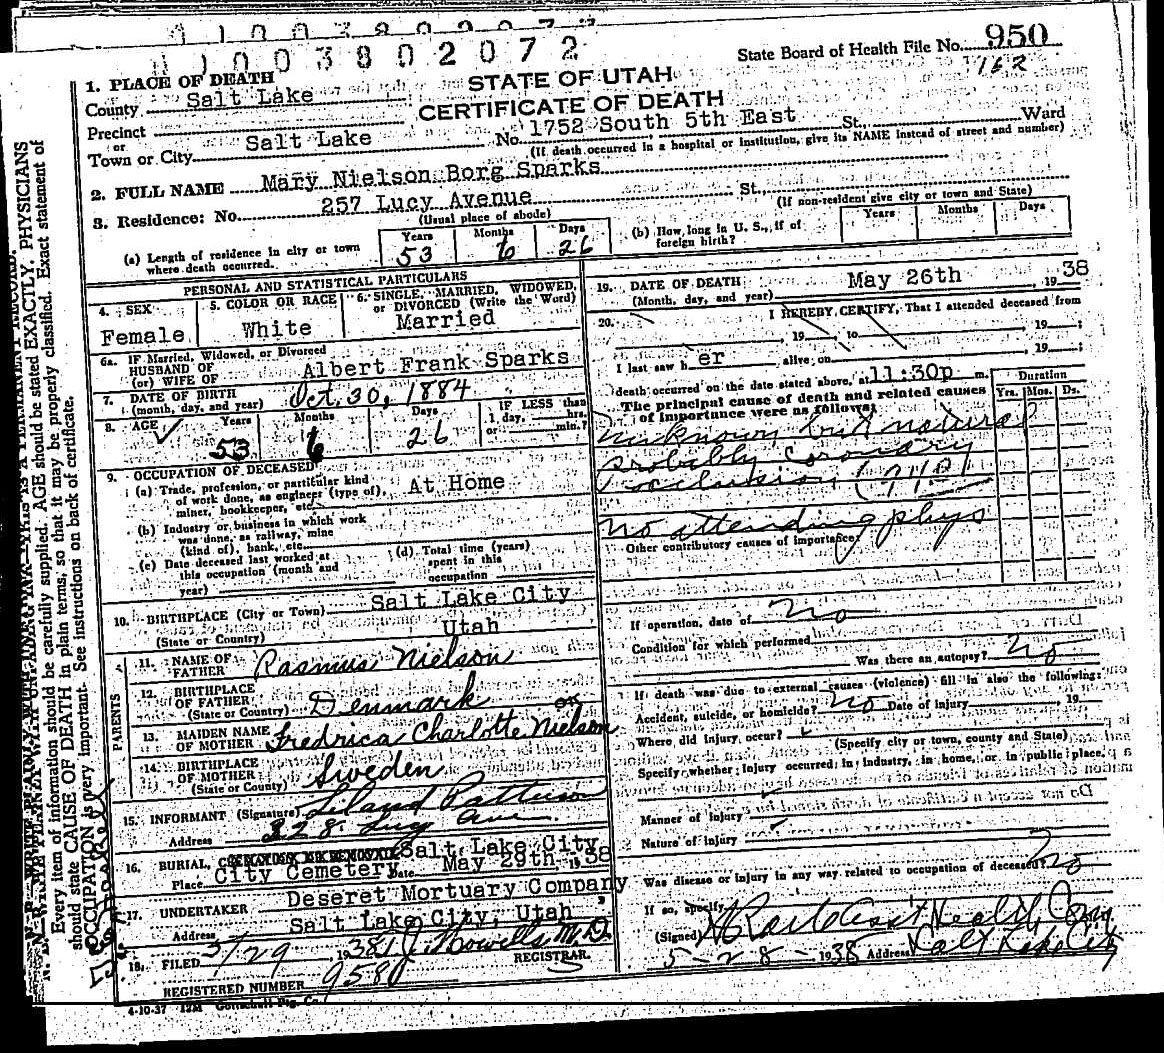 1003802072
State Board of Health File No. 950
162
STATE OF UTAH
CERTIFICATE OF DEATH
1. PLACE OF DEATH
County Salt Lake
Precinct
or
Town or City Salt Lake No. 1752 South 5th East St. Ward
(If death occurred in a hospital or institution, give its NAME instead of street and number)
2. FULL NAME Mary Nielson Borg Sparks
3. Residence: No. 257 Lucy Avenue St.,
(Usual place of abode) (If non-resident give city or town and State)
(a) Length of residence in city or town where death occurred. Years 53 Months 6 Days 26
(b) How long in U. S., if of foreign birth? Years Months Days
PERSONAL AND STATISTICAL PARTICULARS
4. SEX Female
5. COLOR OR RACE White
6. SINGLE, MARRIED, WIDOWED, OR DIVORCED (Write the Word) Married
6a. IF Married, Widowed, or Divorced
HUSBAND OF
(or) WIFE OF Albert Frank Sparks
7. DATE OF BIRTH
(month, day, and year) Oct. 30, 1884
8. AGE Years 53 Months 6 Days 26 IF LESS than 1 day, hrs. or min.?
9. OCCUPATION OF DECEASED
(a) Trade, profession, or particular kind of work done, as engineer (type of), miner, bookkeeper, etc. At Home
(b) Industry or business in which work was done, as railway, mine (kind of), bank, etc.
(c) Date deceased last worked at this occupation (month and year)
(d) Total time (years) spent in this occupation
10. BIRTHPLACE (City or Town) Salt Lake City
(State or Country) Utah
PARENTS
11. NAME OF FATHER Rasmus Nielson
12. BIRTHPLACE OF FATHER
(State or Country) Denmark
13. MAIDEN NAME OF MOTHER Fredrica Charlotte Nielson
14. BIRTHPLACE OF MOTHER
(State or Country) Sweden
15. INFORMANT (Signature)
Address 328 Lucy Ave.
16. BURIAL, Salt Lake City
Place City Cemetery Date May 29th 1938
17. UNDERTAKER Deseret Mortuary Company
Address Salt Lake City, Utah
18. FILED 5/29 1938 M.D. REGISTRAR.
REGISTERED NUMBER 9580
4-10-37 12M
19. DATE OF DEATH
(Month, day, and year) May 26th 1938
20. I HEREBY CERTIFY, That I attended deceased from
, 19 , to , 19 ;
I last saw her alive on , 19 ;
death occurred on the date stated above, at 11:30p m.
The principal cause of death and related causes of importance were as follows:
Duration
Yrs. Mos. Ds.
Unknown but natural
Probably coronary
occlusion
No attending phys
Other contributory causes of importance:
If operation, date of No
Condition for which performed
Was there an autopsy? No
If death was due to external causes (violence) fill in also the following:
Accident, suicide, or homicide? No Date of injury , 19
Where did injury occur?
(Specify city or town, county and State)
Specify whether injury occurred in industry, in home, or in public place.
Manner of injury
Nature of injury
Was disease or injury in any way related to occupation of deceased? No
If so, specify
(Signed)
5-28-1938 Address Salt Lake City
Every item of information should be carefully supplied. AGE should be stated EXACTLY. PHYSICIANS
should state CAUSE OF DEATH in plain terms, so that it may be properly classified. Exact statement of
OCCUPATION is very important. See instructions on back of certificate.